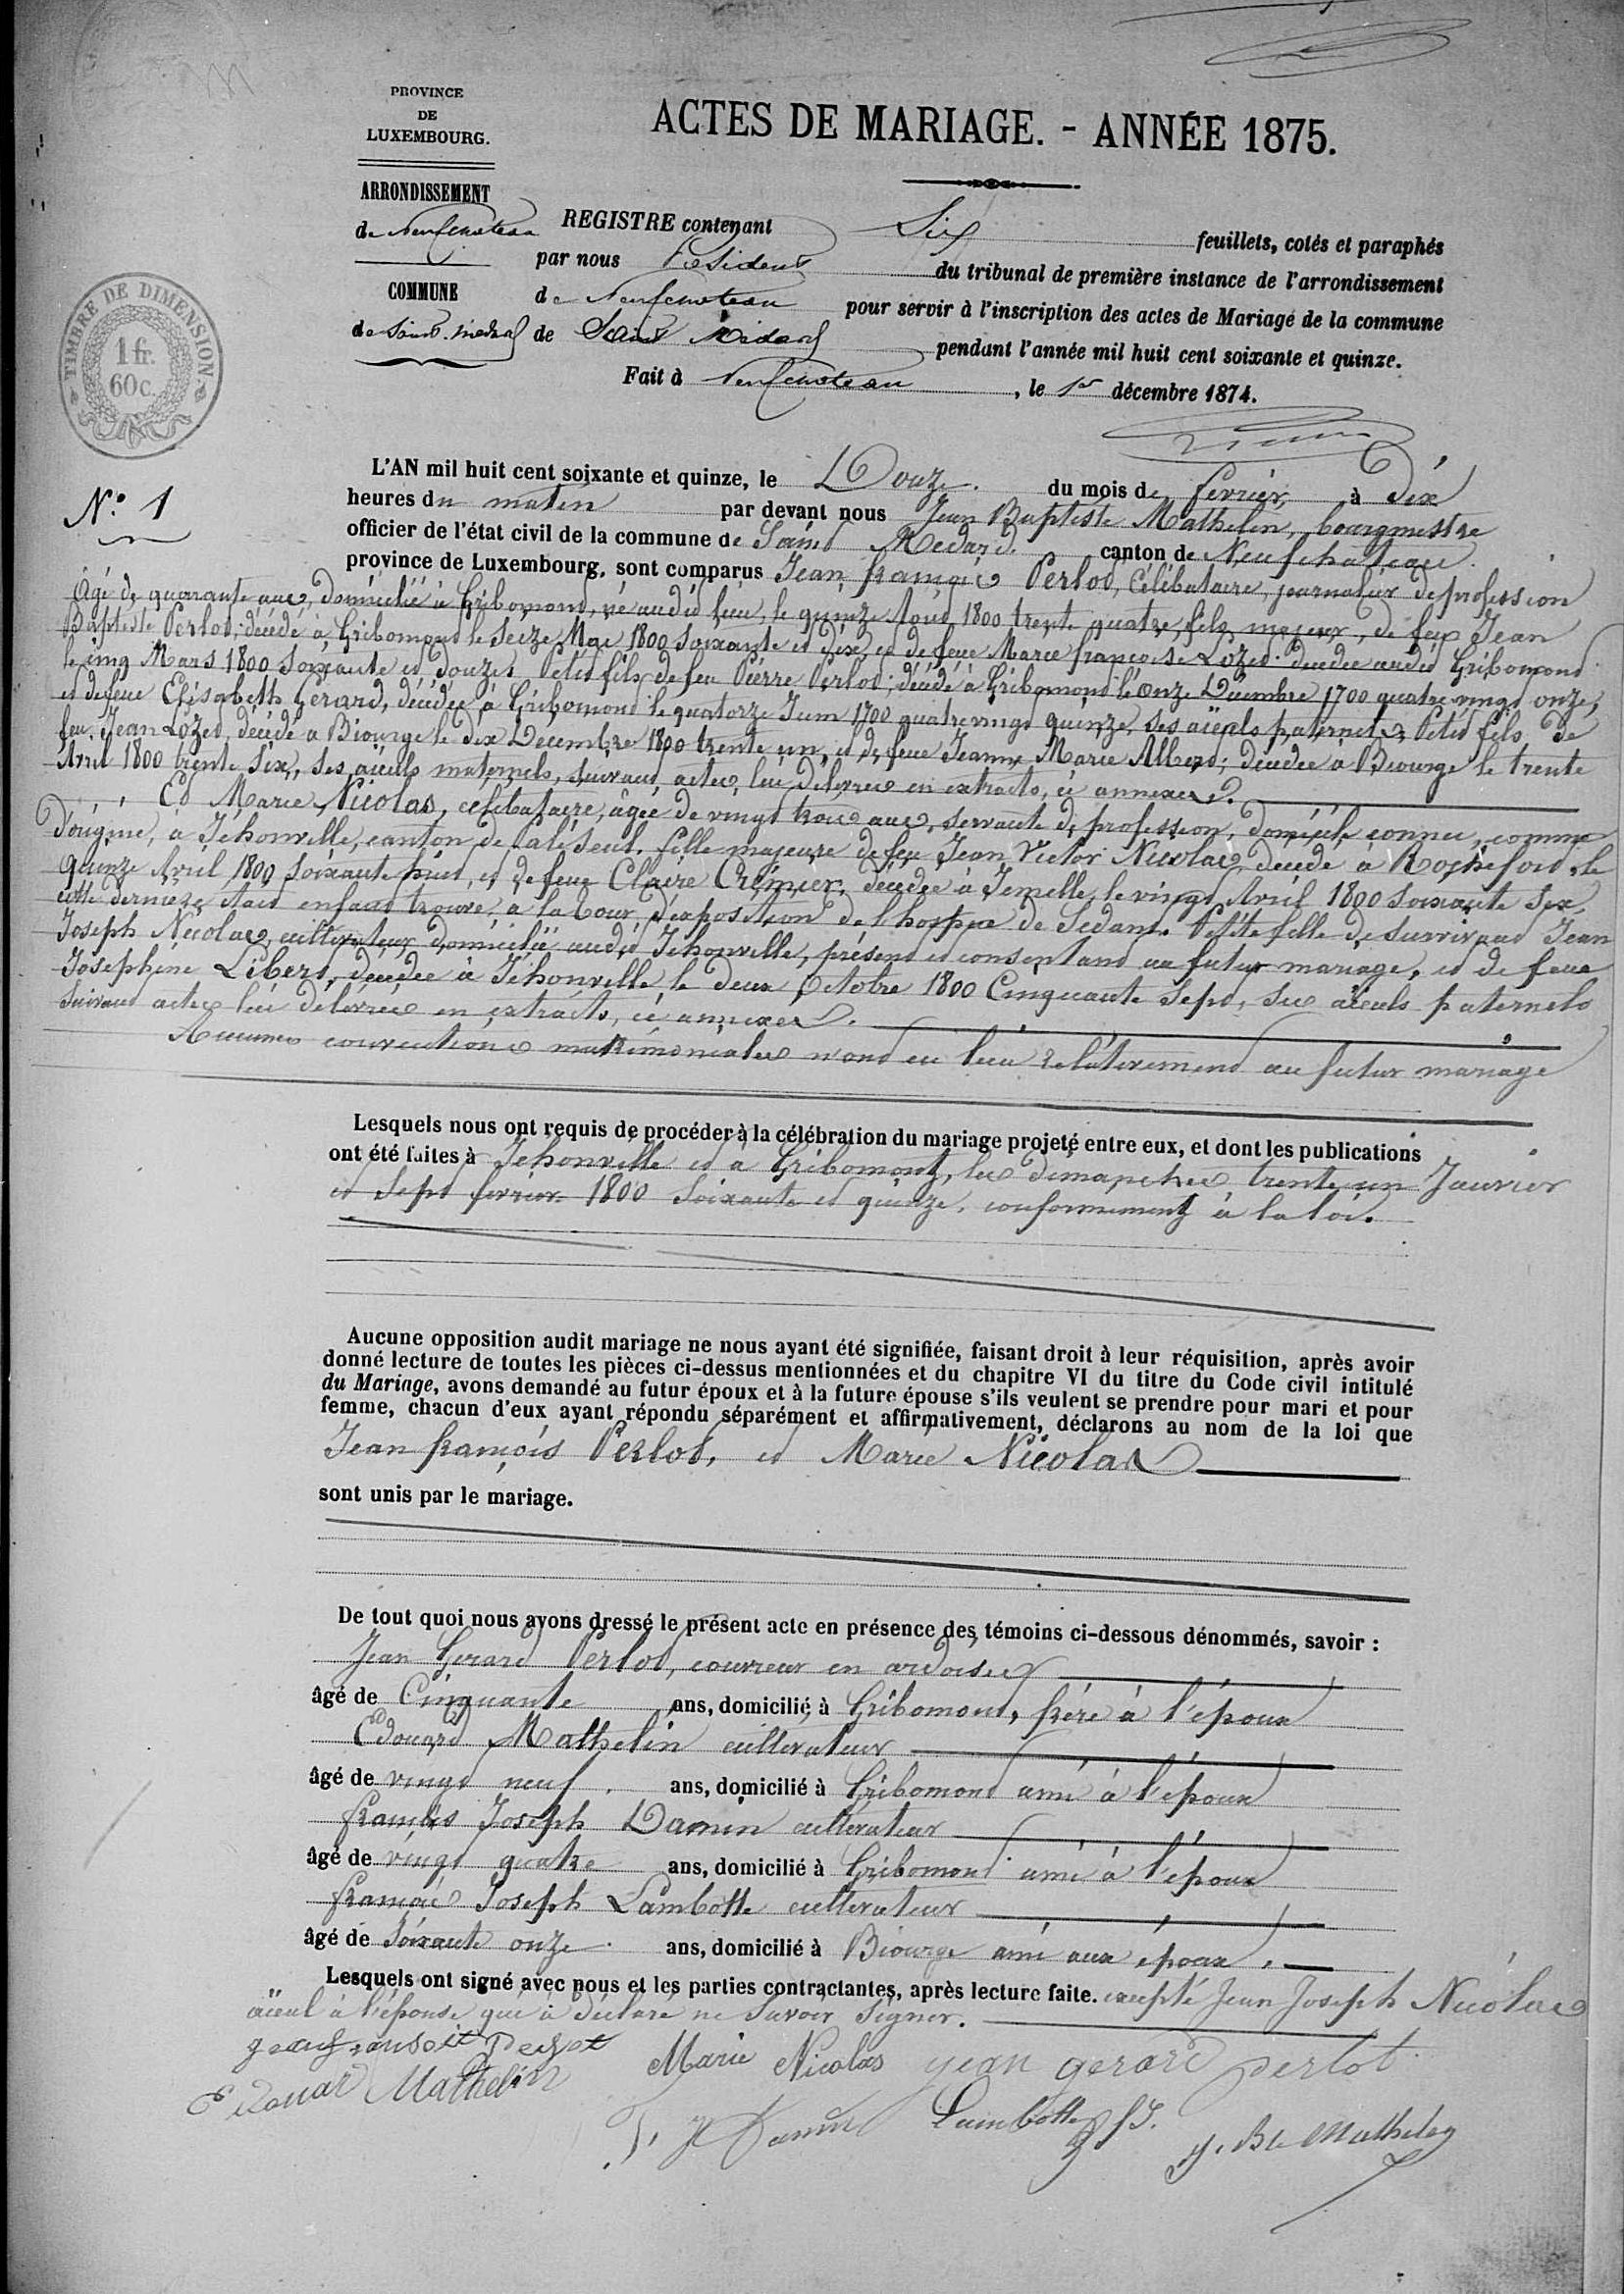 PROVINCE
DE
LUXEMBOURG.
ARRONDISSEMENT
de Neufchateau
COMMUNE
de Saint-Medard
ACTES DE MARIAGE. - ANNÉE 1875.
REGISTRE contenant Six feuillets, cotés et paraphés
par nous Président du tribunal de première instance de l'arrondissement
de Neufchateau pour servir à l'inscription des actes de Mariage de la commune
de Saint Médard pendant l'année mil huit cent soixante et quinze.
Fait à Neufchateau, le 1er décembre 1874.
TIMBRE DE DIMENSION
1 fr.
60 c.
N° 1
L'AN mil huit cent soixante et quinze, le Douze du mois de février à dix
heures du matin par devant nous Jean Baptiste Mathelin, bourgmestre
officier de l'état civil de la commune de Saint Medard canton de Neufchâteau
province de Luxembourg, sont comparus Jean françois Perlot, célibataire, journalier de profession
âgé de quarante ans, domicilié à Gribomont, né audit lieu, le quinze Aout 1800 trente quatre, fils majeur, de feu Jean
Baptiste Perlot, décédé à Gribomont le Seize Mai 1800 Soixante et dix, et de feue Marie françoise Lozet décédée audit Gribomont
le cinq Mars 1800 Soixante et douze, Petit fils de feu Pierre Perlot, décédé à Gribomont le onze Décembre 1700 quatre vingt onze,
et de feue Elisabeth Gerard, décédée à Gribomont le quatorze Juin 1700 quatre vingt quinze, ses aïeuls paternels, Petit fils de
feu Jean Lozet, décédé à Biourge le dix Décembre 1800 trente un, et de feue Jeanne Marie Albert, décédée à Biourge le trente
Avril 1800 trente Six, ses aïeuls maternels, suivant actes lui délivrés en extraits, ci annexés.
Et Marie Nicolas, célibataire, âgée de vingt trois ans, servante de profession, domicile connu, comme
d'origine, à Jéhonville, canton de Paliseul, fille majeure de feu Jean Victor Nicolas, décédé à Rochefort le
quinze Avril 1800 Soixante huit, et de feue Claire Crémier, décédée à Jemelle, le vingt Avril 1800 soixante six,
cette dernière était enfant trouvé, à la Cour d'exposition de l'hospice de Sedan. Petite fille de survivant Jean
Joseph Nicolas, cultivateur, domicilié audit Jehonville, présent et consentant au futur mariage, et de feue
Joséphine Libert, décédée à Jéhonville, le deux Octobre 1800 Cinquante Sept, ses aïeuls paternels
suivant actes lui délivrés en extraits, ci annexés.
Aucunes conventions matrimoniales n'ont eu lieu relativement au futur mariage
Lesquels nous ont requis de procéder à la célébration du mariage projeté entre eux, et dont les publications
ont été faites à Jéhonville et à Gribomont, les dimanches trente un Janvier
et Sept février 1800 Soixante et quinze, conformément à la loi.
Aucune opposition audit mariage ne nous ayant été signifiée, faisant droit à leur réquisition, après avoir
donné lecture de toutes les pièces ci-dessus mentionnées et du chapitre VI du titre du Code civil intitulé
du Mariage, avons demandé au futur époux et à la future épouse s'ils veulent se prendre pour mari et pour
femme, chacun d'eux ayant répondu séparément et affirmativement, déclarons au nom de la loi que
Jean françois Perlot, et Marie Nicolas
sont unis par le mariage.
De tout quoi nous avons dressé le présent acte en présence des témoins ci-dessous dénommés, savoir :
Jean Gerard Perlot, couvreur en ardoises
âgé de Cinquante ans, domicilié à Gribomont, frère à l'époux
Edouard Mathelin cultivateur
âgé de vingt neuf ans, domicilié à Gribomont ami à l'époux
françois Joseph Damin cultivateur
âgé de vingt quatre ans, domicilié à Gribomont ami à l'époux
françois Joseph Lambotte cultivateur
âgé de Soixante onze ans, domicilié à Biourge ami aux époux.
Lesquels ont signé avec nous et les parties contractantes, après lecture faite. excepté Jean Joseph Nicolas
aïeul à l'épouse qui a déclaré ne savoir signer.
Marie Nicolas jean gerard perlot
Edouard Mathelin
F. J. Damin Lambotte f J. J. Bte Mathelin